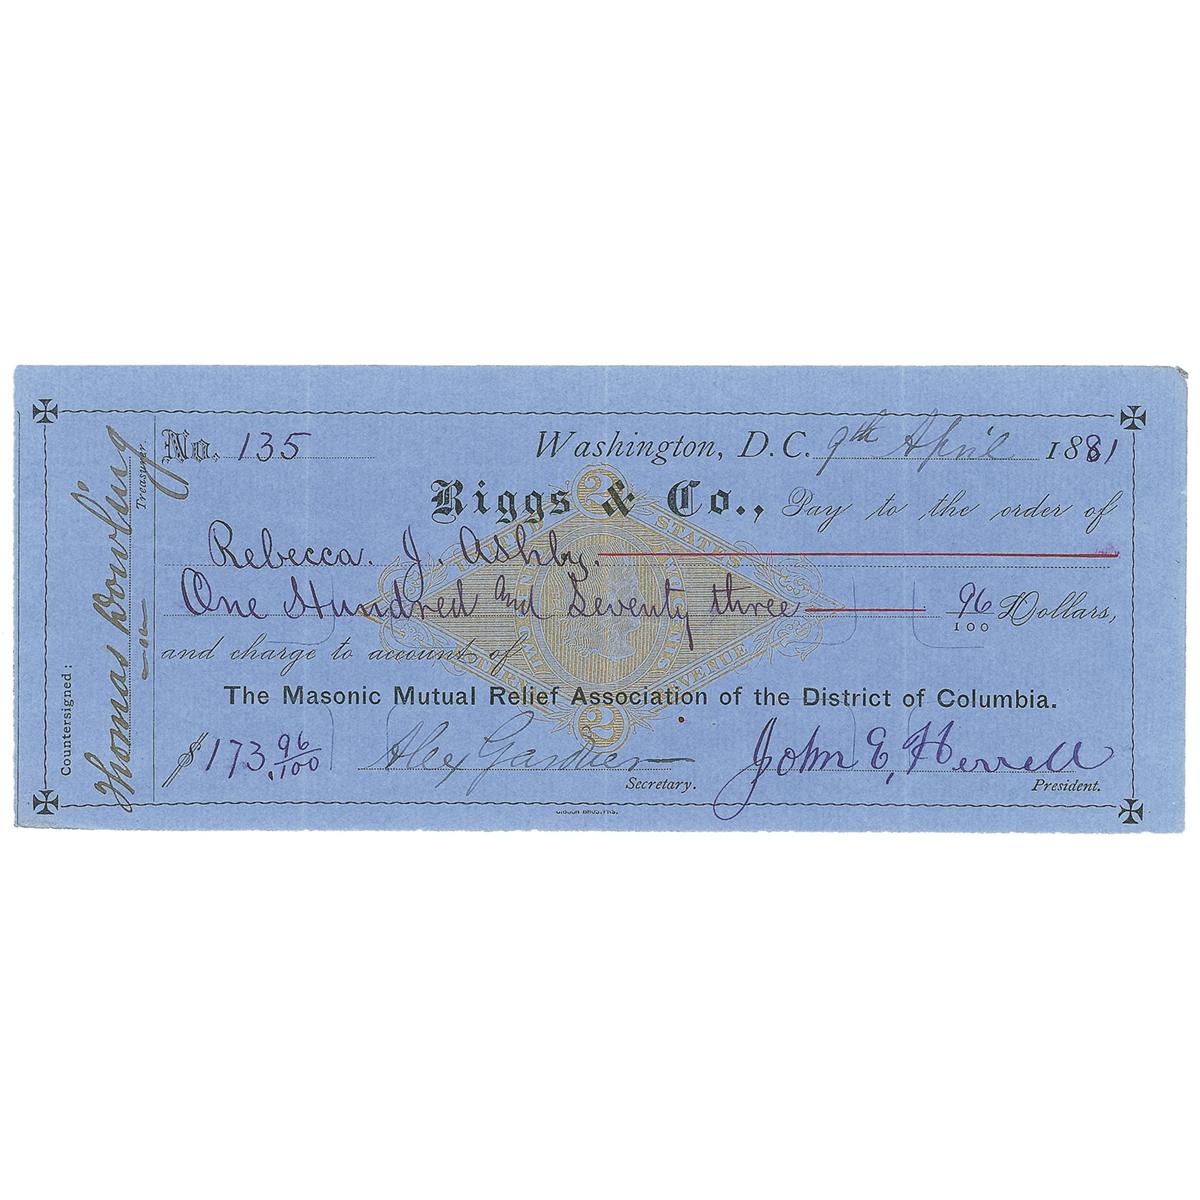 No. 135 Washington, D.C. 9th April 1881
Riggs & Co., Pay to the order of
Rebecca. J. Ashby.
One Hundred and Seventy three 96/100 Dollars,
and charge to account of
The Masonic Mutual Relief Association of the District of Columbia.
$173.96/100 Alex Gardner John E, Herrell
Secretary. President.
Countersigned:
Thomas Dowling
Treasurer.
2
UNITED STATES
INTERNAL REVENUE
2
GIBSON BROS. PRS.